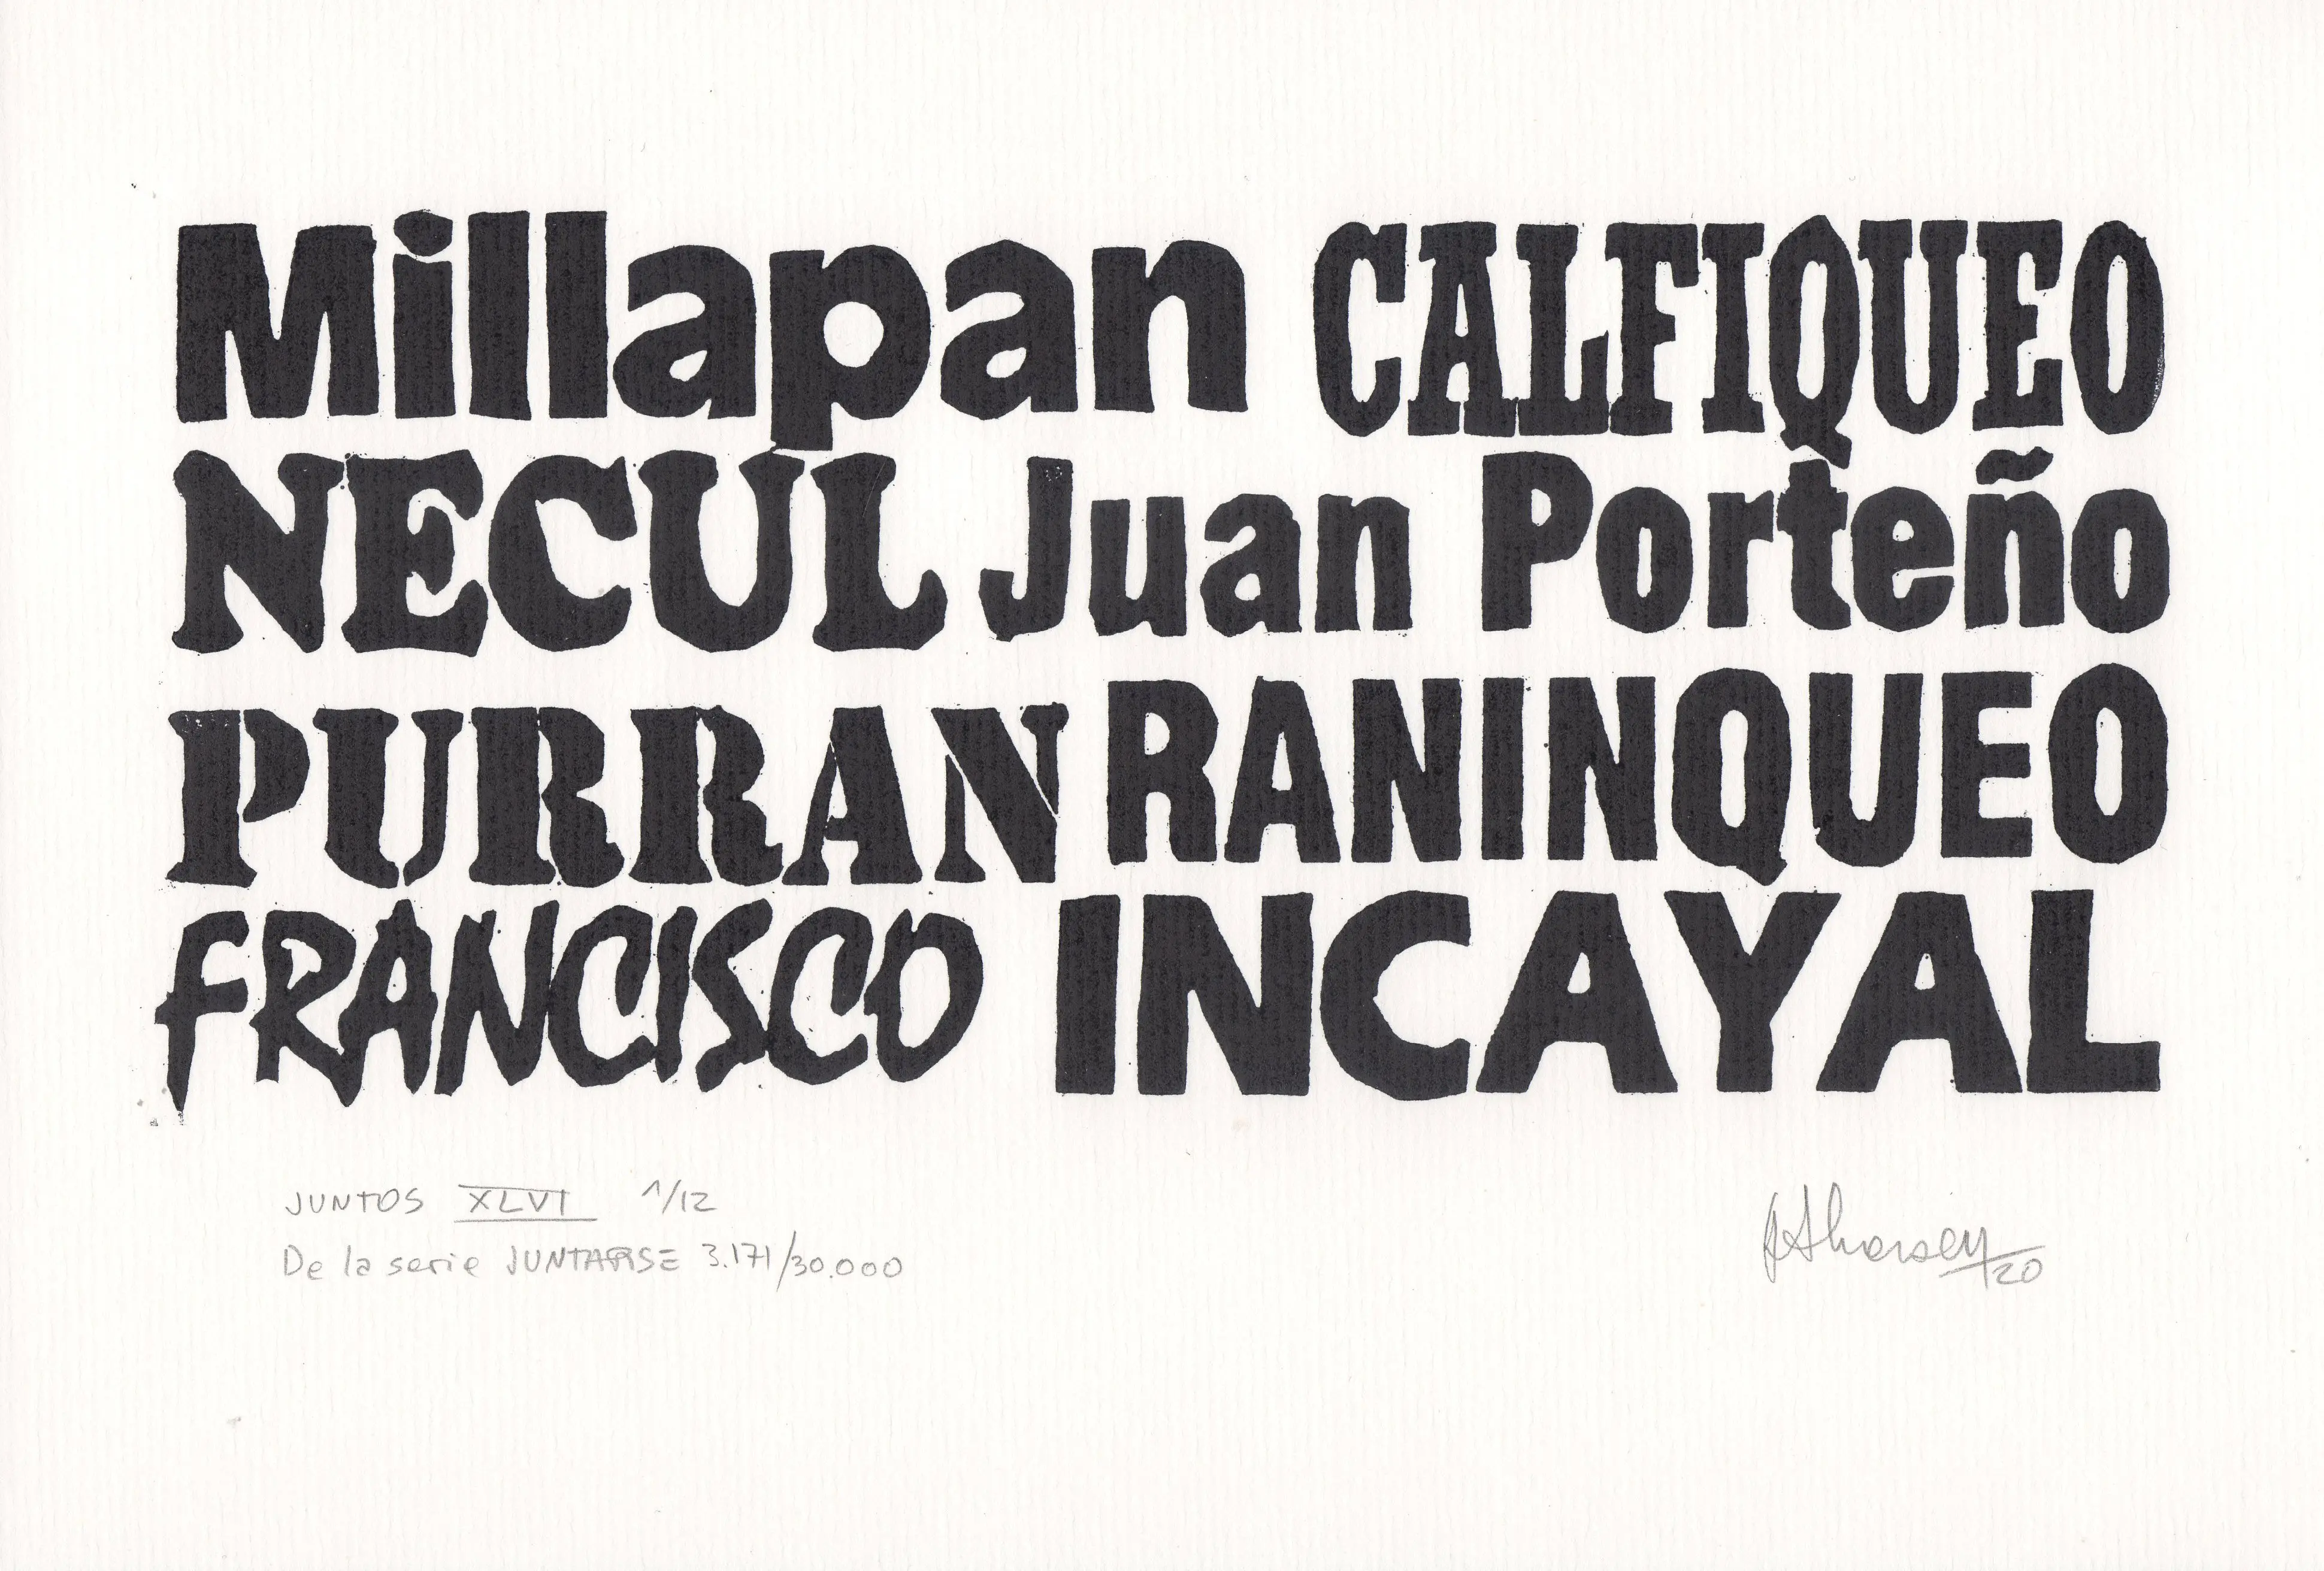 Millapan CALFIQUEO
NECUL Juan Porteño
PURRAN RANINQUEO
FRANCISCO INCAYAL
JUNTOS XLVI 1/12
De la serie JUNTARSE 3.171/30.000
20